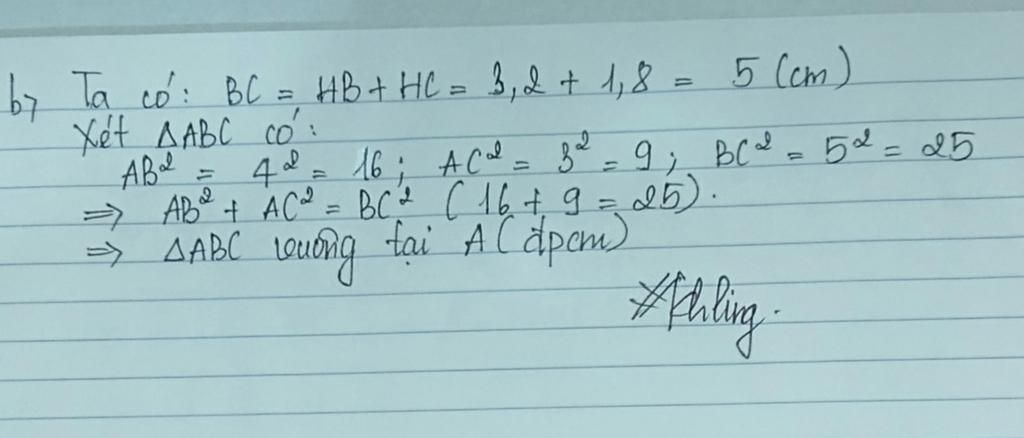 b, Ta có: BC = HB + HC = 3,2 + 1,8 = 5 (cm)
Xét ΔABC có:
AB² = 4² = 16; AC² = 3² = 9; BC² = 5² = 25
⇒ AB² + AC² = BC² (16 + 9 = 25).
⇒ ΔABC vuông tại A (đpcm)